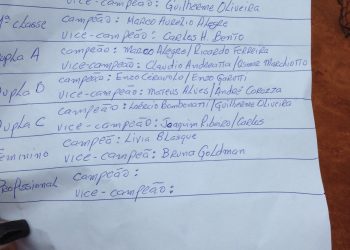 vice-campeão: Guilherme Oliveira
1ª classe campeão: Marco Aurélio Alegre
vice-campeão: Carlos H. Bento
Dupla A campeão: Marco Alegre/Ricardo Ferreira
vice-campeão: Claudio Andreatta/
Dupla B campeão: Enzo Ceravolo/Enzo
vice-campeão: Mateus Alves/André Carozza
Dupla C campeão: Laércio Bambonatti/Guilherme Oliveira
vice-campeão: Joaquim Ribaco/Carlos
Feminino campeã: Livia Blasque
vice-campeã: Bruna Goldman
Profissional campeão:
vice-campeão: